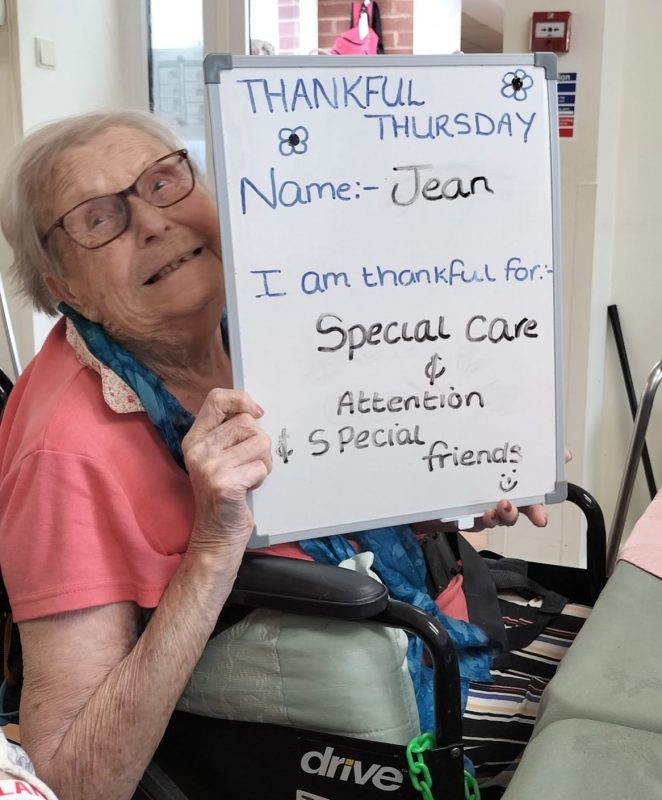 THANKFUL
THURSDAY
Name:- Jean
I am thankful for:-
Special Care
&
Attention
& Special
friends
drive
LAN